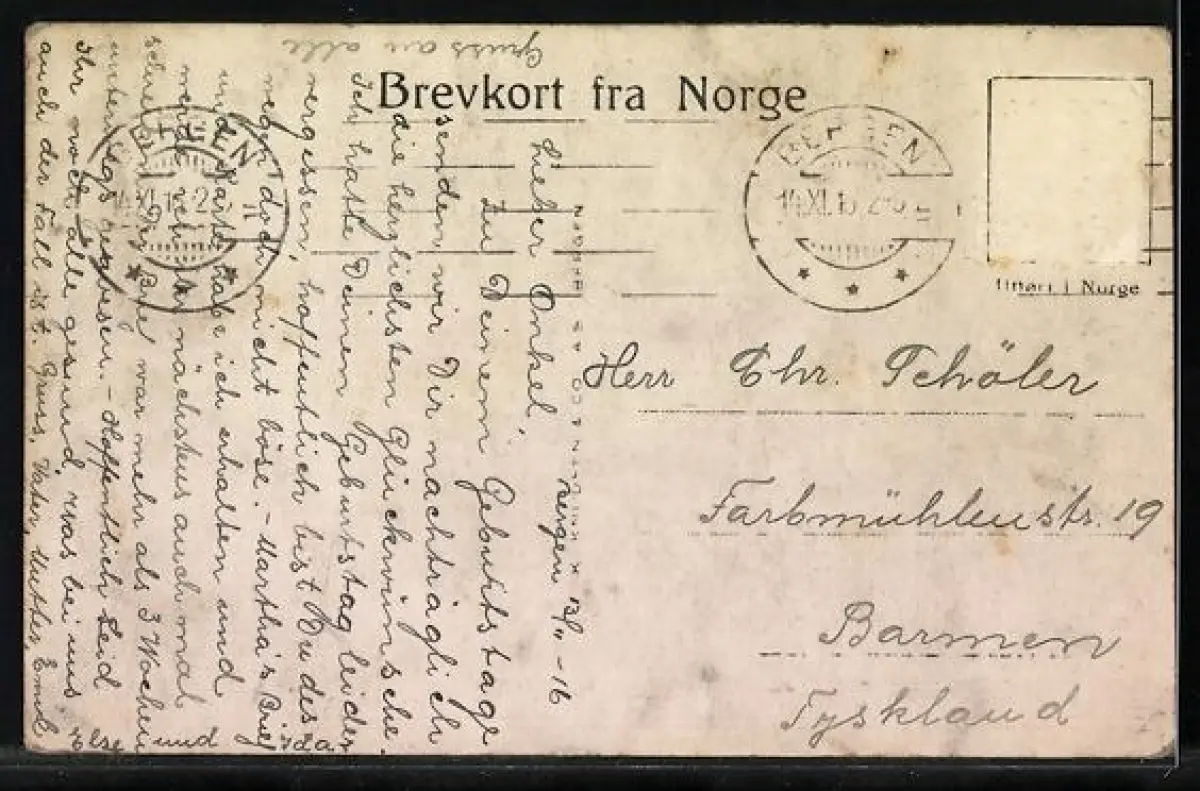 Brevkort fra Norge
BERGEN
14 XI 16
BERGEN
14 XI 16
Herr Chr. Schöler
Farbmühlenstr. 19
Barmen
Tyskland
Bergen 13/11 - 16
Lieber Onkel!
Zu Deinem Geburtstage
senden wir Dir nachträglich
die herzlichsten Glückwünsche.
Ich hatte Deinen Geburtstag leider
vergessen, hoffentlich bist Du des-
wegen doch nicht böse. - Martha's Brief
und Karte habe ich erhalten und
werde ich ihr nächstens auch mal
schreiben. Der Brief war mehr als 3 Wochen
unterwegs gewesen. - Hoffentlich seid
Ihr noch alle gesund, was bei uns
auch der Fall ist. Gruss, Vater, Mutter, Emil
Else und Ida.
Gruss an alle